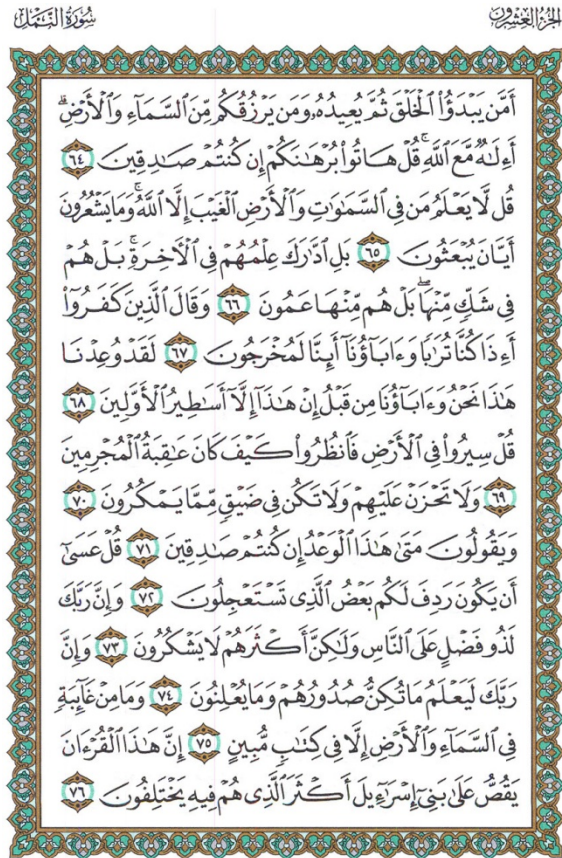 الجزء العشرون
سورة النمل
أَمَّن يَبْدَؤُا۟ ٱلْخَلْقَ ثُمَّ يُعِيدُهُۥ وَمَن يَرْزُقُكُم مِّنَ ٱلسَّمَآءِ وَٱلْأَرْضِ ۗ
أَءِلَٰهٌ مَّعَ ٱللَّهِ ۚ قُلْ هَاتُوا۟ بُرْهَٰنَكُمْ إِن كُنتُمْ صَٰدِقِينَ ٦٤
قُل لَّا يَعْلَمُ مَن فِى ٱلسَّمَٰوَٰتِ وَٱلْأَرْضِ ٱلْغَيْبَ إِلَّا ٱللَّهُ ۚ وَمَا يَشْعُرُونَ
أَيَّانَ يُبْعَثُونَ ٦٥ بَلِ ٱدَّٰرَكَ عِلْمُهُمْ فِى ٱلْءَاخِرَةِ ۚ بَلْ هُمْ
فِى شَكٍّ مِّنْهَا ۖ بَلْ هُم مِّنْهَا عَمُونَ ٦٦ وَقَالَ ٱلَّذِينَ كَفَرُوٓا۟
أَءِذَا كُنَّا تُرَٰبًا وَءَابَآؤُنَآ أَئِنَّا لَمُخْرَجُونَ ٦٧ لَقَدْ وُعِدْنَا
هَٰذَا نَحْنُ وَءَابَآؤُنَا مِن قَبْلُ إِنْ هَٰذَآ إِلَّآ أَسَٰطِيرُ ٱلْأَوَّلِينَ ٦٨
قُلْ سِيرُوا۟ فِى ٱلْأَرْضِ فَٱنظُرُوا۟ كَيْفَ كَانَ عَٰقِبَةُ ٱلْمُجْرِمِينَ
٦٩ وَلَا تَحْزَنْ عَلَيْهِمْ وَلَا تَكُن فِى ضَيْقٍ مِّمَّا يَمْكُرُونَ ٧٠
وَيَقُولُونَ مَتَىٰ هَٰذَا ٱلْوَعْدُ إِن كُنتُمْ صَٰدِقِينَ ٧١ قُلْ عَسَىٰٓ
أَن يَكُونَ رَدِفَ لَكُم بَعْضُ ٱلَّذِى تَسْتَعْجِلُونَ ٧٢ وَإِنَّ رَبَّكَ
لَذُو فَضْلٍ عَلَى ٱلنَّاسِ وَلَٰكِنَّ أَكْثَرَهُمْ لَا يَشْكُرُونَ ٧٣ وَإِنَّ
رَبَّكَ لَيَعْلَمُ مَا تُكِنُّ صُدُورُهُمْ وَمَا يُعْلِنُونَ ٧٤ وَمَا مِنْ غَآئِبَةٍ
فِى ٱلسَّمَآءِ وَٱلْأَرْضِ إِلَّا فِى كِتَٰبٍ مُّبِينٍ ٧٥ إِنَّ هَٰذَا ٱلْقُرْءَانَ
يَقُصُّ عَلَىٰ بَنِىٓ إِسْرَٰٓءِيلَ أَكْثَرَ ٱلَّذِى هُمْ فِيهِ يَخْتَلِفُونَ ٧٦